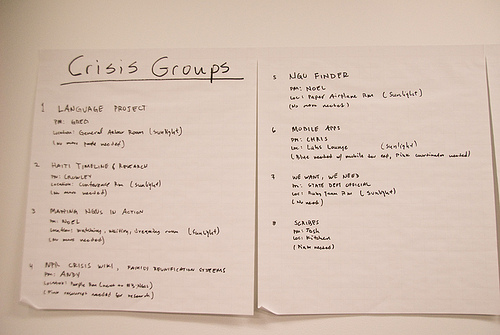 Crisis Groups
1 LANGUAGE PROJECT
PM:
Location: General Room (Sunlight)
(No more needed)
2 HAITI TIMELINE & RESEARCH
PM:
Location: Conference Rm (Sunlight)
(No more needed)
3 MAPPING NGOS IN ACTION
PM: NOEL
Location: watching, waiting, dreaming room (Sunlight)
(No more needed)
4 NPR CRISIS WIKI, FAMILY REUNIFICATION SYSTEMS
PM: ANDY
Location: Purple Rm
needed for research)
5 NGO FINDER
PM: NOEL
Loc: Paper Airplane Rm (Sunlight)
(No more needed)
6 MOBILE APPS
PM: CHRIS
Loc: Labs Lounge (Sunlight)
needed w/ mobile coordinator needed)
7 WE WANT, WE NEED
PM: STATE DEPT OFFICIAL
Loc: Ruby Room Rm (Sunlight)
(No need)
8
PM: Josh
Loc: Kitchen
needed)